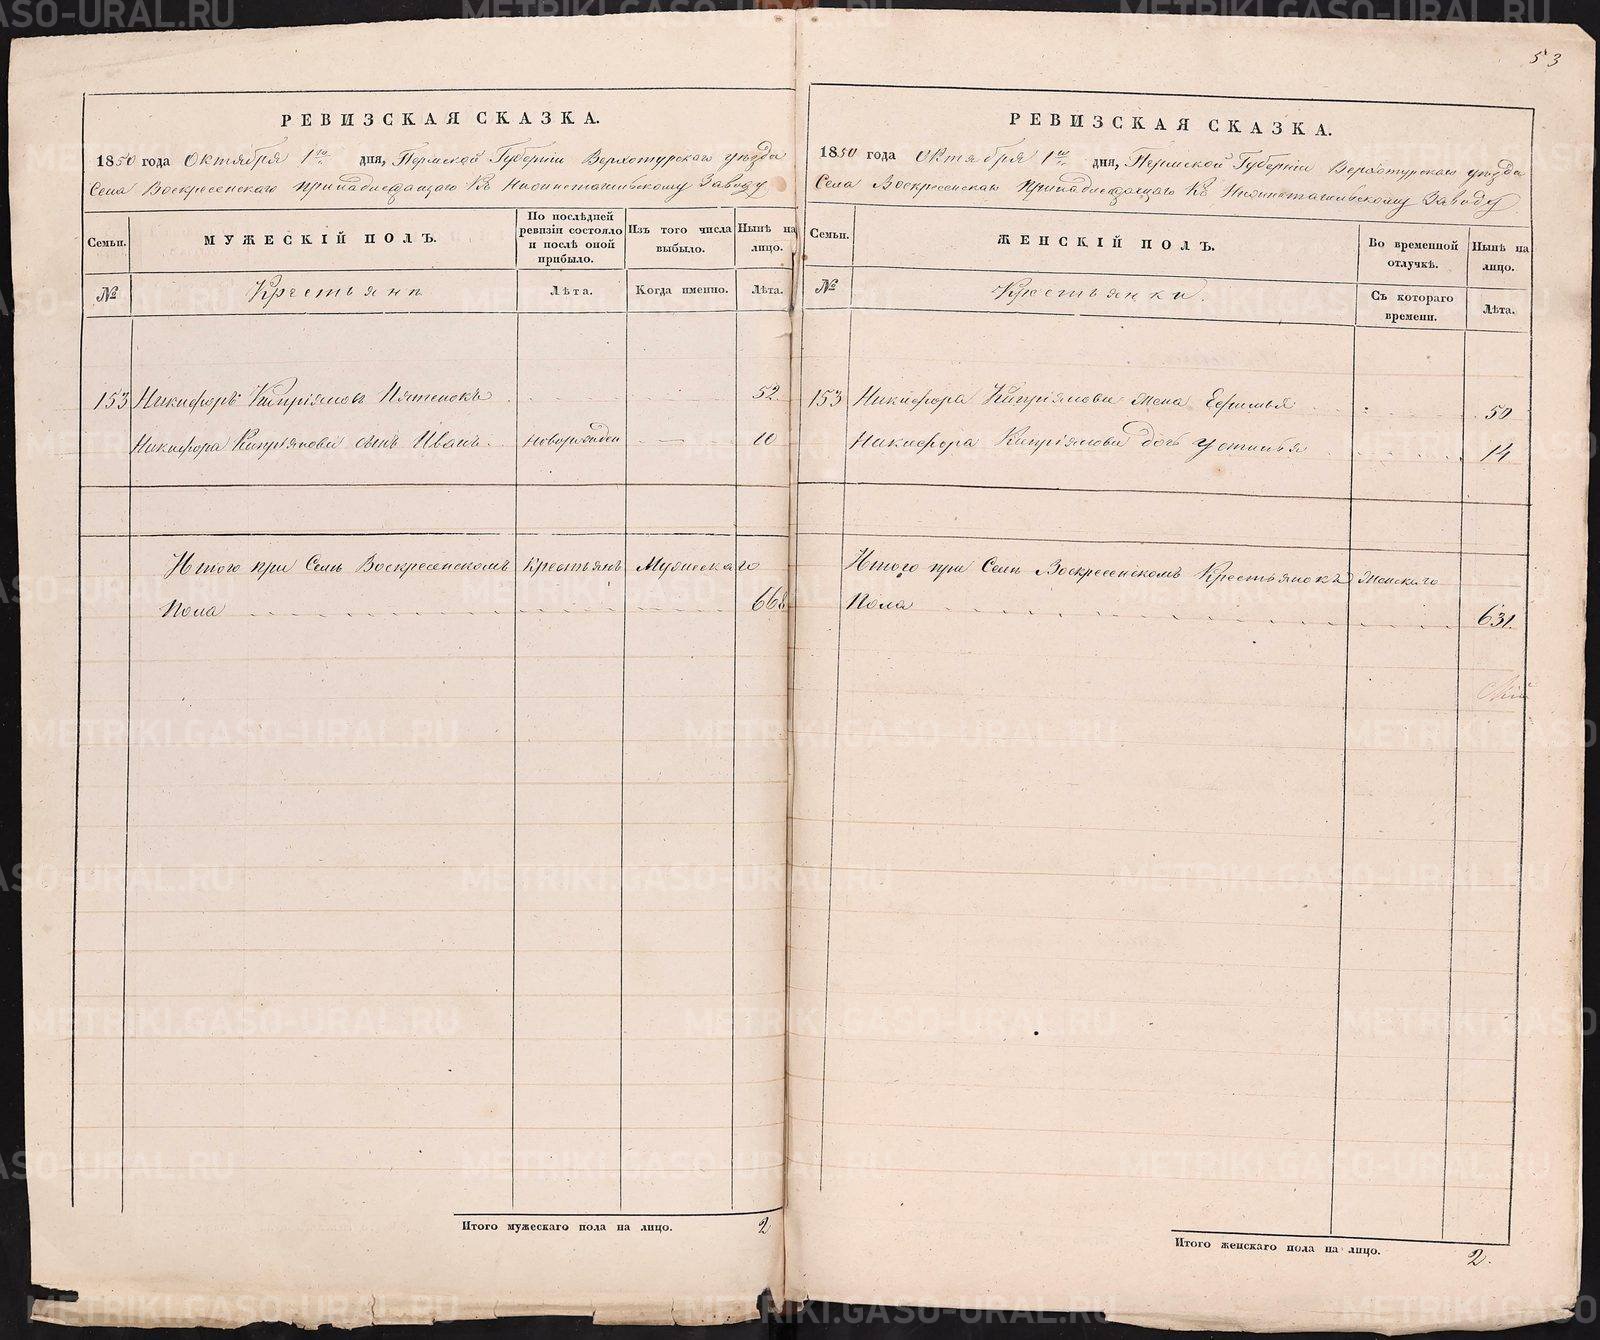 53
РЕВИЗСКАЯ СКАЗКА.
1850 года Октября 1го дня, Пермской Губерніи Верхотурскаго уѣзда
Села Воскресенскаго принадлежащаго къ Нижнетагильскому Заводу
Семьи.
МУЖЕСКІЙ ПОЛЪ.
По послѣдней ревизіи состояло и послѣ оной прибыло.
Изъ того числа выбыло.
Нынѣ на лицо.
№
Крестьяне
Лѣта.
Когда именно.
Лѣта.
153 Никифоръ Кипріяновъ 52
Никифора Кипріянова сынъ Иванъ новорожден 10
Итого при Селѣ Воскресенскомъ Крестьянъ Мужескаго
Пола 668
Итого мужескаго пола на лицо. 2
РЕВИЗСКАЯ СКАЗКА.
1850 года Октября 1го дня, Пермской Губерніи Верхотурскаго уѣзда
Села Воскресенскаго принадлежащаго къ Нижнетагильскому Заводу
Семьи.
ЖЕНСКІЙ ПОЛЪ.
Во временной отлучкѣ.
Нынѣ на лицо.
№
Крестьянки.
Съ котораго времени.
Лѣта.
153 Никифора Кипріянова жена Ефимья 50
Никифора Кипріянова дочь Устинья 14
Итого при Селѣ Воскресенскомъ Крестьянокъ Женскаго
Пола 631.
Итого женскаго пола на лицо. 2.
METRIKI.GASO-URAL.RU